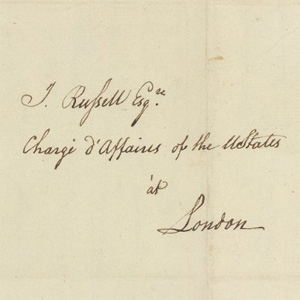 J. Russell Esqre.
Chargé d'Affaires of the UStates
at
London